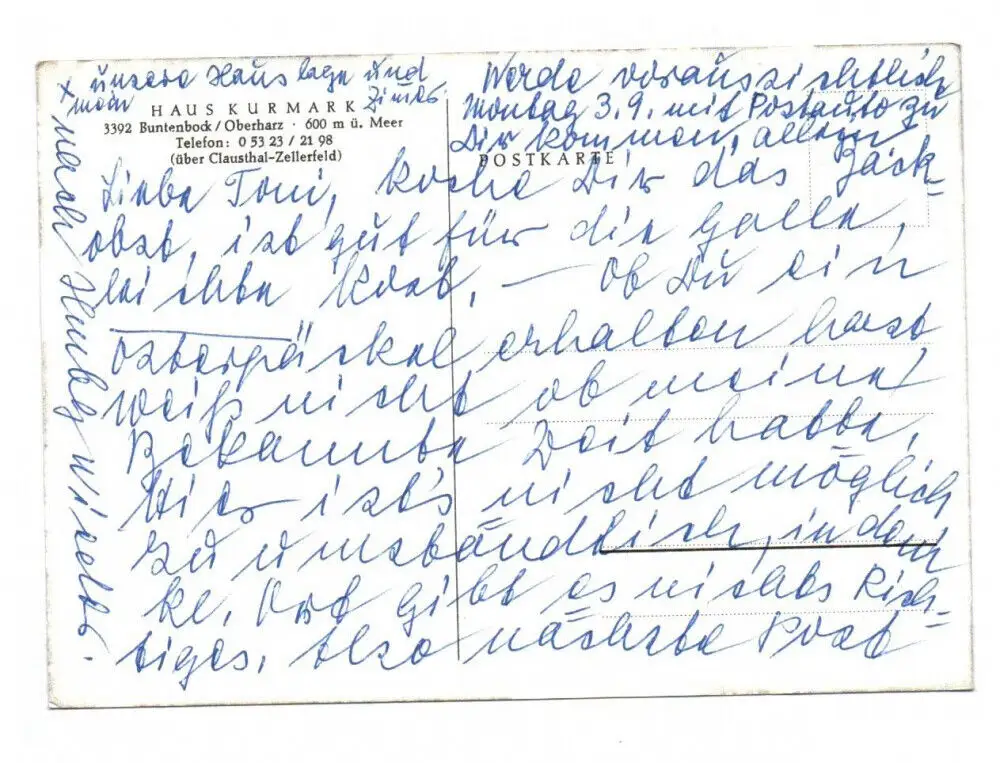 x unsere Hauslage und
mein Zimer
HAUS KURMARK
3392 Buntenbock / Oberharz · 600 m ü. Meer
Telefon: 0 53 23 / 21 98
(über Clausthal-Zellerfeld)
POSTKARTE
Werde voraussichtlich
Montag 3.9. mit Postauto zu
Dir kommen, allein
Liebe Toni, koche Dir das Back-
obst, ist gut für die Galle,
leichte Kost, — Ob Du ein
Osterpäckel erhalten hast
weiß nicht ob meine
Bekannte Zeit hatte,
Hier ist's nicht möglich
zu umständlich, in dem
kl. Ort gibt es nichts Rich-
tiges, Also nächste Post
nach
nichts.